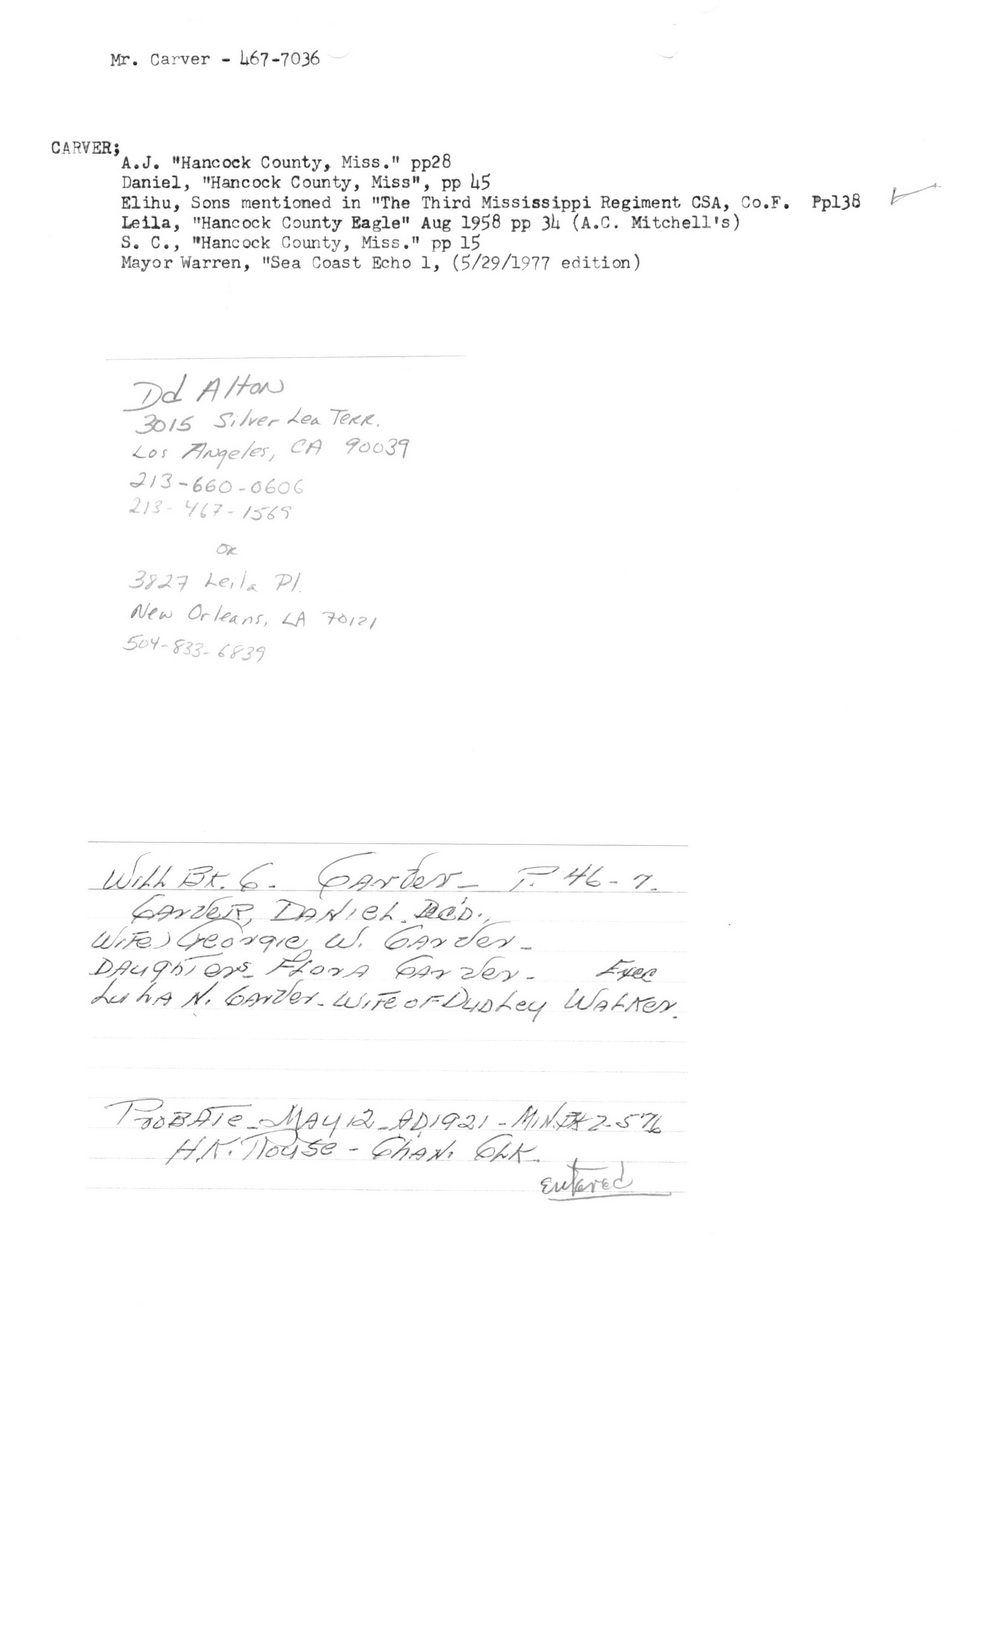 Mr. Carver - 467-7036
CARVER;
A.J. "Hancock County, Miss." pp28
Daniel, "Hancock County, Miss", pp 45
Elihu, Sons mentioned in "The Third Mississippi Regiment CSA, Co.F. Pp138
Leila, "Hancock County Eagle" Aug 1958 pp 34 (A.C. Mitchell's)
S. C., "Hancock County, Miss." pp 15
Mayor Warren, "Sea Coast Echo 1, (5/29/1977 edition)
Dd Alton
3015 Silver Lea Terr.
Los Angeles, CA 90039
213-660-0606
213-467-1569
OR
3827 Leila Pl.
New Orleans, LA 70121
504-833-6839
Will Bk. 6. Carver - P. 46-7.
Carver, Daniel Dec'd.,
Wife) Georgie W. Carver -
Daughters Flora Carver - Exec
Lula N. Carver - Wife of Dudley Walker.
Probate - May 12 - AD 1921 - Min. Bk 2-576
H.K. Rouse - Chan. Clk.
entered